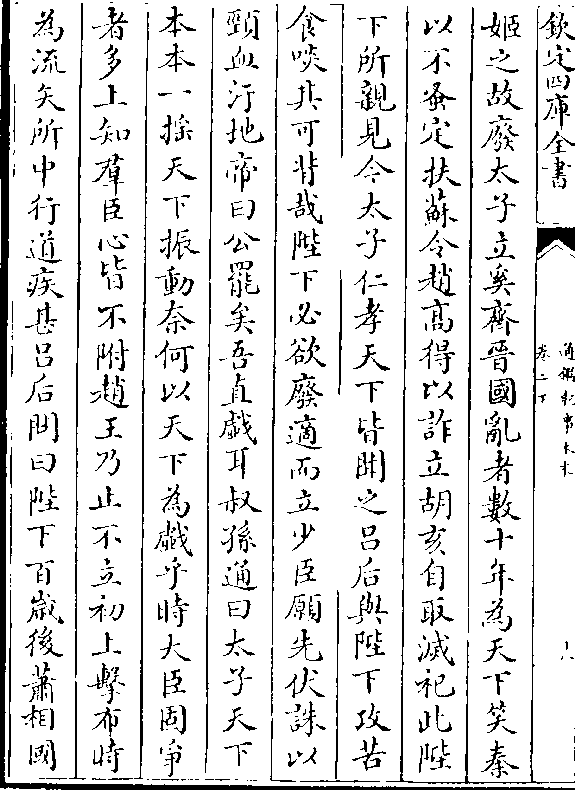 欽定四庫全書
通鑑紀事本末
卷二下
姬之故廢太子立奚齊晉國亂者數十年為天下笑秦
以不蚤定扶蘇令趙髙得以詐立胡亥自取滅祀此陛
下所親見今太子仁孝天下皆聞之吕后與陛下攻苦
食啖其可背哉陛下必欲廢適而立少臣願先伏誅以
頸血汙地帝曰公罷矣吾直戲耳叔孫通曰太子天下
本本一揺天下振動奈何以天下為戲乎時大臣固爭
者多上知羣臣心皆不附趙王乃止不立初上擊布時
為流矢所中行道疾甚吕后問曰陛下百歲後蕭相國